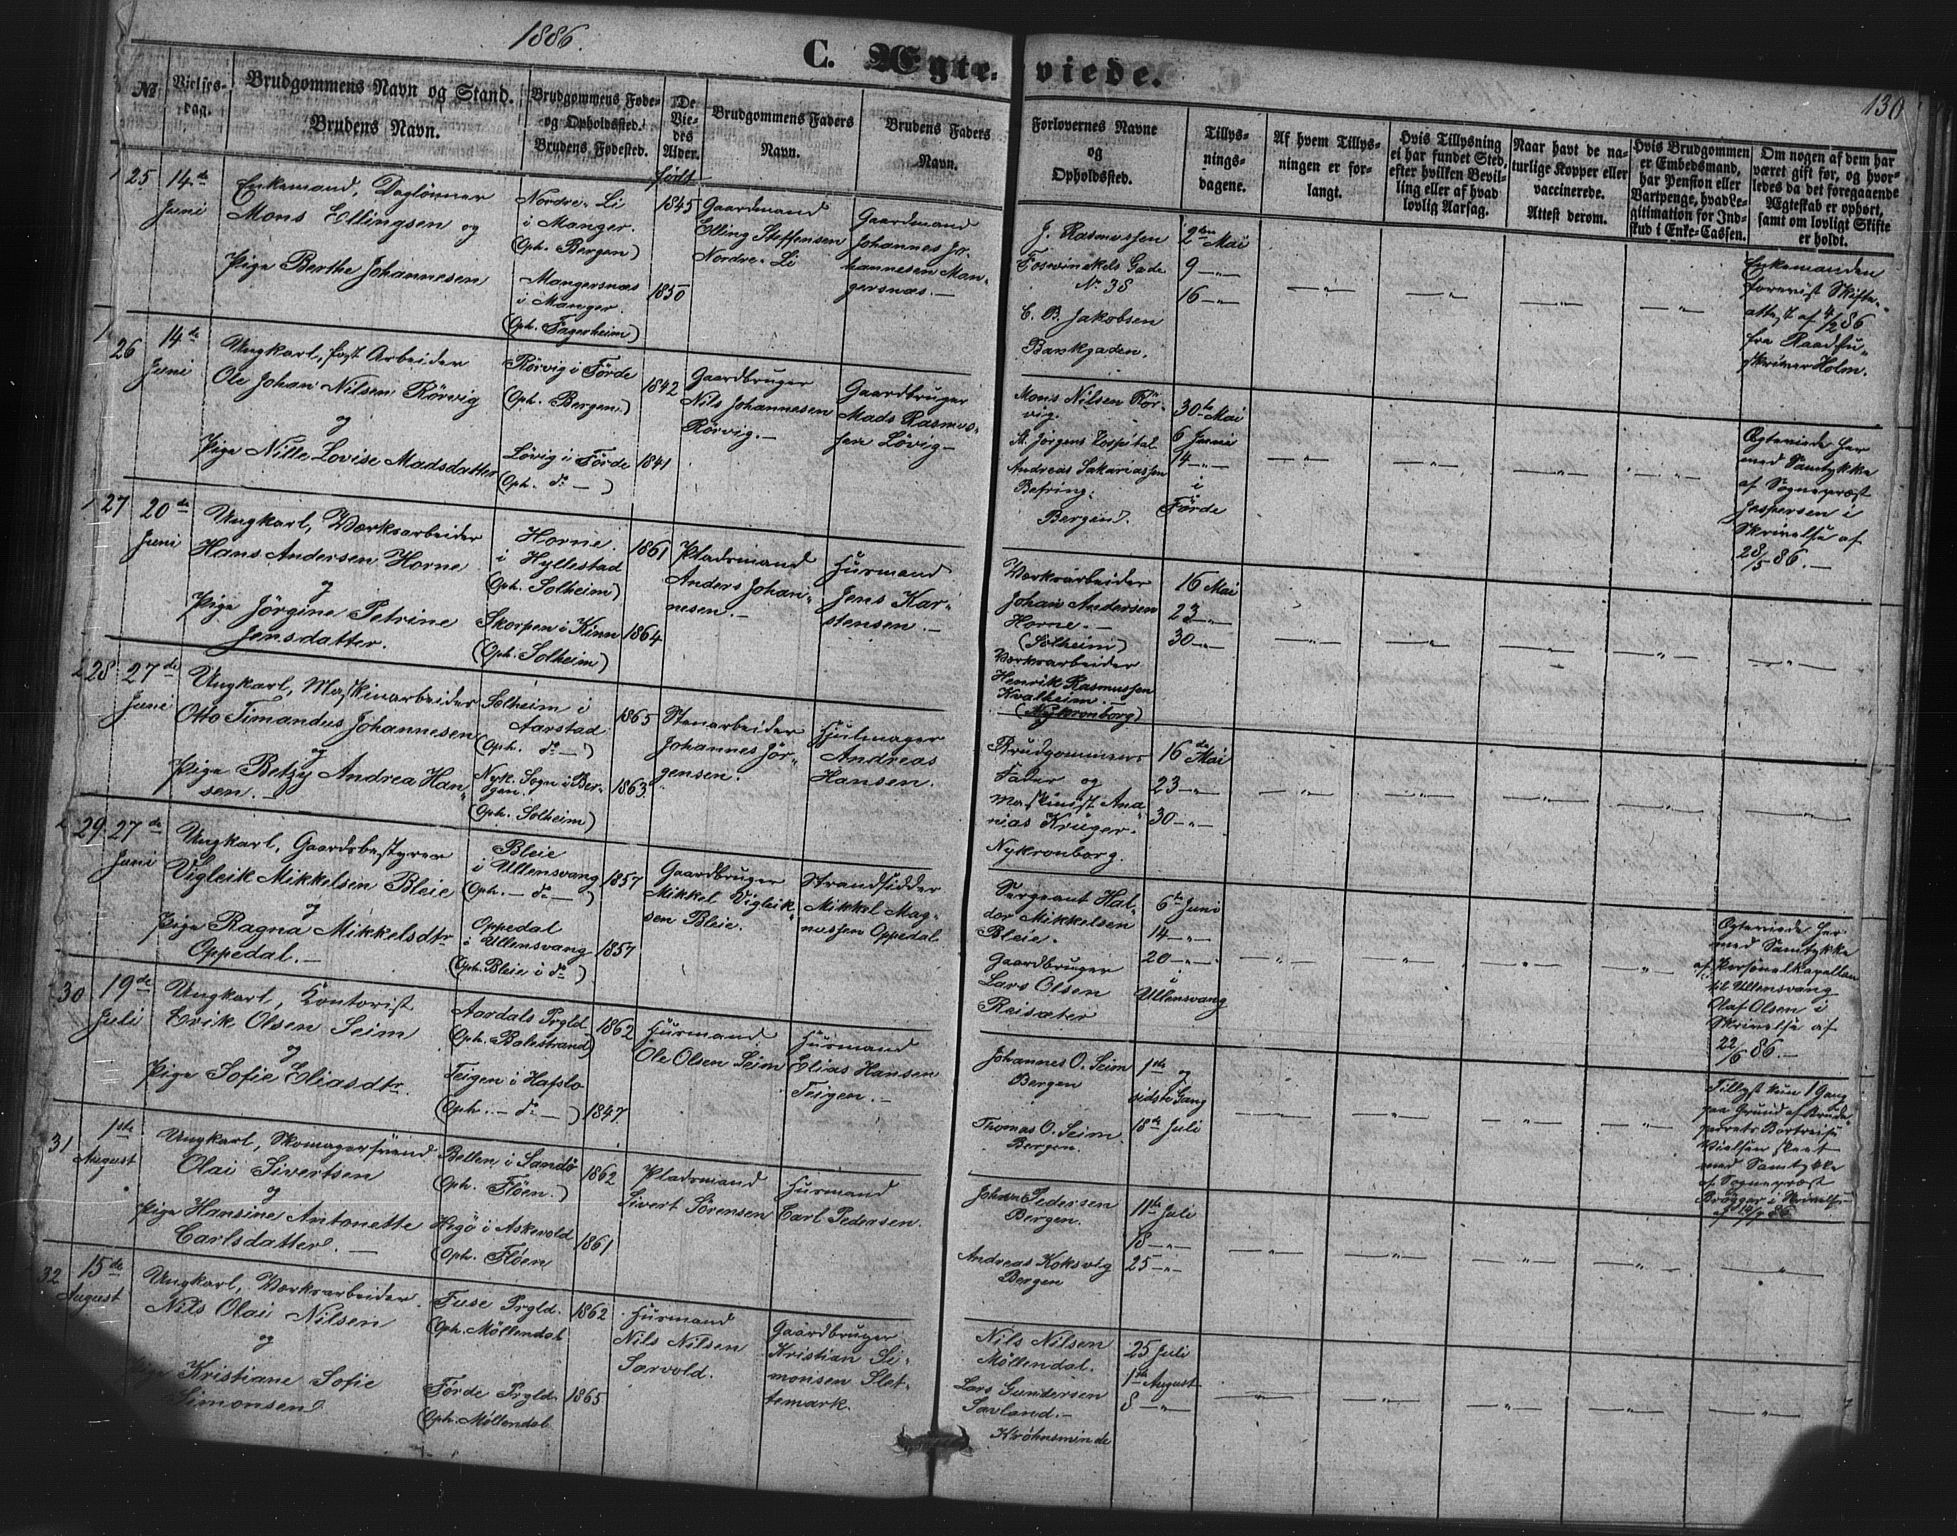 1886.
C. Ægte-viede.
130
№
Vielses-
dag.
Brudgommens Navn og Stand.
Brudens Navn.
Brudgommens Føde-
og Opholdssted.
Brudens Fødested.
De
Vie-
des
Alder.
født
Brudgommens Faders
Navn.
Brudens Faders
Navn.
Forlovernes Navne
og
Opholdssted.
Tillys-
nings-
dagene.
Af hvem Tillys-
ningen er for-
langt.
Hvis Tillysning
ei har fundet Sted,
efter hvilken Bevil-
ling eller af hvad
lovlig Aarsag.
Naar havt de na-
turlige Kopper eller
vaccinerede.
Attest derom.
Hvis Brudgommen
er Embedsmand,
har Pension eller
Vartpenge, hvad Le-
gitimation for Ind-
skud i Enke-Cassen.
Om nogen af dem har
været gift for, og hvor-
ledes da det foregaaende
Ægteskab er ophørt,
samt om lovligt Skifte
er holdt.
25
14de
Juni
Enkemand, Daglönner
Mons Ellingsen og
Pige Berthe Johannesen
Nordre-Li
i Manger.
(Oph. Bergen)
Mangersnæs
i Manger.
(Oph. Fagerheim)
1845
1850
Gaardmand
Elling Steffensen
Nordre-Li
Gaardmand
Johannes Jo-
hannesen Man-
gersnæs.—
J. Rasmussen
Foswinckels Gade
Nr. 38
C. B. Jakobsen
Baskgaden.
2den Mai
9 —"—
16 —"—
Enkemanden
forevist Skifte-
att. af 4/2 86
fra Raadstu-
skriver Holm.
26
14de
Juni
Ungkarl, fast Arbeider
Ole Johan Nilsen Rörvig
og
Pige Nille Lovise Madsdatter
Rörvig i Förde
(Oph. Bergen)
Lövig i Förde
(Oph. do —)
1842
1841
Gaardbruger
Nils Johannesen
Rörvig.—
Gaardbruger
Mads Rasmus-
sen Lövig—
Mons Nilsen Rör-
vig.
St. Jörgens Hospital
Andreas Sakariassen
Befring.
Bergen.
30te Mai
6 Juni
14 —"—
i
Förde
Ægteviede her
med Samtykke
af Sognepræst
Jespersen i
Skrivelse af
28/5 86.—
27
20de
Juni
Ungkarl, Værksarbeider
Hans Andersen Horne
og
Pige Jörgine Petrine
Jensdatter.
Horne.
i Hyllestad
(Oph. Solheim)
Skorpen i Kinn
(Oph. Solheim)
1861
1864
Pladsmand
Anders Johan-
nesen.—
Husmand
Jens Kar-
stensen.—
Værksarbeider
Johan Andersen
Horne.—
(Solheim)
Værksarbeider
Henrik Rasmussen
Kvalheim.—
(Nykronborg)
16 Mai
23 —"—
30 —"—
28
27de
Juni
Ungkarl, Maskinarbeider
Otto Timandus Johannesen
og
Pige Betzy Andrea Han-
sen.—
Solheim i
Aarstad
(Oph. do —)
Nyk. Sogn i Ber-
gen.
(Oph. Solheim)
1865
1863
Stenarbeider
Johannes Jör-
gensen.
Hjulmager
Andreas
Hansen.
Brudgommens
Fader og
Maskinist Ana-
nias Krüger.
Nykronborg.
16de Mai
23 —"—
30 —"—
29
27de
Juni
Ungkarl, Gaardsbestyrer
Vigleik Mikkelsen Bleie
og
Pige Ragna Mikkelsdtr
Oppedal.—
Bleie
i Ullensvang
(Oph. — do —)
Oppedal
i Ullensvang
(Oph. Bleie i do)
1857
1857
Gaardbruger
Mikkel Vigleik-
sen Bleie.
Strandsidder
Mikkel Mag-
nussen Oppedal
Sergeant Hal-
dor Mikkelsen
Bleie.
Gaardbruger
Lars Olsen
Reisæter
6te Juni
14 —"—
20 —"—
i
Ullensvang
Ægteviede her
med Samtykke
af Personelkapellan
til Ullensvang
Olaf Olsen i
Skrivelse af
22/6 86.—
30
19de
Juli
Ungkarl, Kontorist
Erik Olsen Seim
og
Pige Sofie Eliasdtr.
Aardals Prgld
(Oph. Balestrand)
Teigen i Hafslo
(Oph. — do —)
1862
1847.
Husmand
Ole Olsen Seim
Husmand
Elias Hansen
Teigen.—
Johannes O. Seim
Bergen
Thomas O. Seim.
Bergen.
1ste og
sidste Gang
18de Juli
Tillyst kun 1 Gang
paa Grund af Brude-
parrets Bortreise
Vielsen skeet
med Samtykke
af Sognepræst
Brøgger i Skrivelse
31
1ste
August
Ungkarl, Skomagersvend
Olai Sivertsen
og
Pige Hansine Antonette
Carlsdatter.—
(Oph. Flöen.)
Higö i Askevold
(Oph. Flöen
1862
1861
Pladsmand
Sivert Sörensen
Husmand
Carl Pedersen.
Johan Pedersen
Bergen.
Andreas Koksvig
Bergen
11te Juli
18 —"—
25 —"—
32
15de
August
Ungkarl, Værksarbeider.
Nils Olai Nilsen
og
Pige Kristiane Sofie
Simonsen
Fuse Prgld.
(Oph. Möllendal
Förde Prgld.
(Oph. Möllendal
1862
1865
Husmand
Nils Nilsen
Sævold.
Gaardbruger
Kristian Si-
monsen Slet-
temark.
Nils Nilsen
Möllendal.
Lars Gundersen
Sævland.—
Krøhnsminde
25 Juli
1ste August
8 —"—